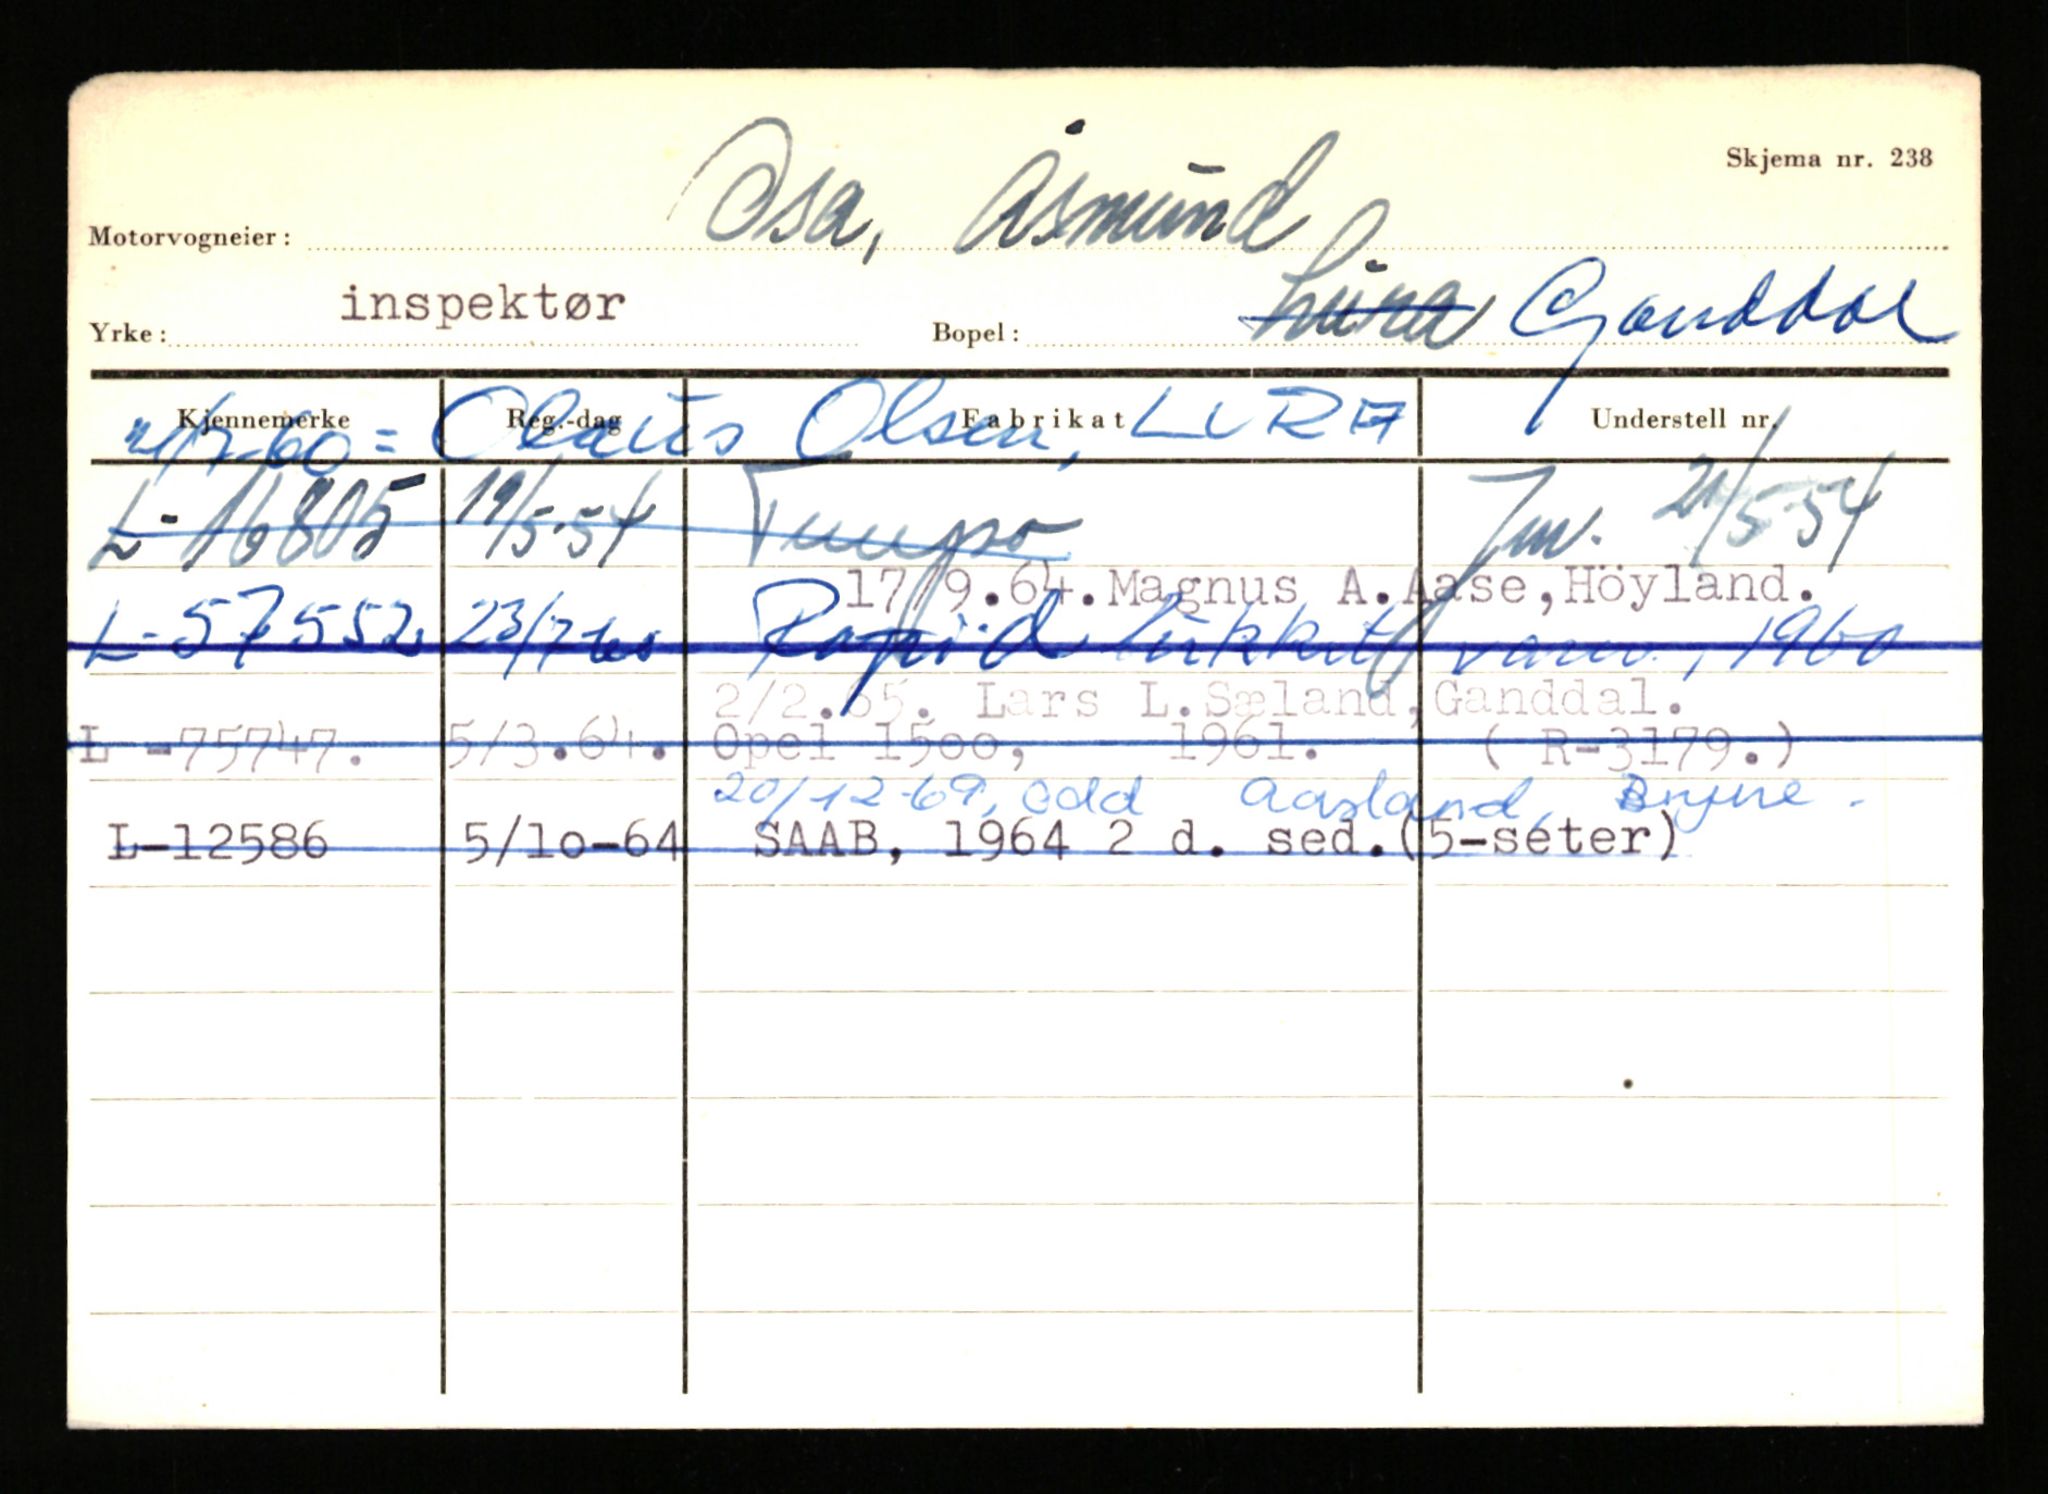 Skjema nr. 238
Motorvogneier: Osa, Åsmund
Yrke: inspektør Bopel: Lura Ganddal
Kjennemerke Reg.-dag Fabrikat Understell nr.
21/7-60 = Olaus Olsen, LURA
L-16805 19/5-54 Tempo Inv. 21/5-54
17/9.64. Magnus A. Aase, Höyland.
L-57552 23/7-60 Rapid lukket varev., 1960
2/2.65. Lars L. Sæland, Ganddal.
L -75747. 5/3.64. Opel 1500, 1961. ( R-3179.)
20/12-69, Odd Aasland, Bryne.
L-12586 5/10-64 SAAB, 1964 2 d. sed.(5-seter)